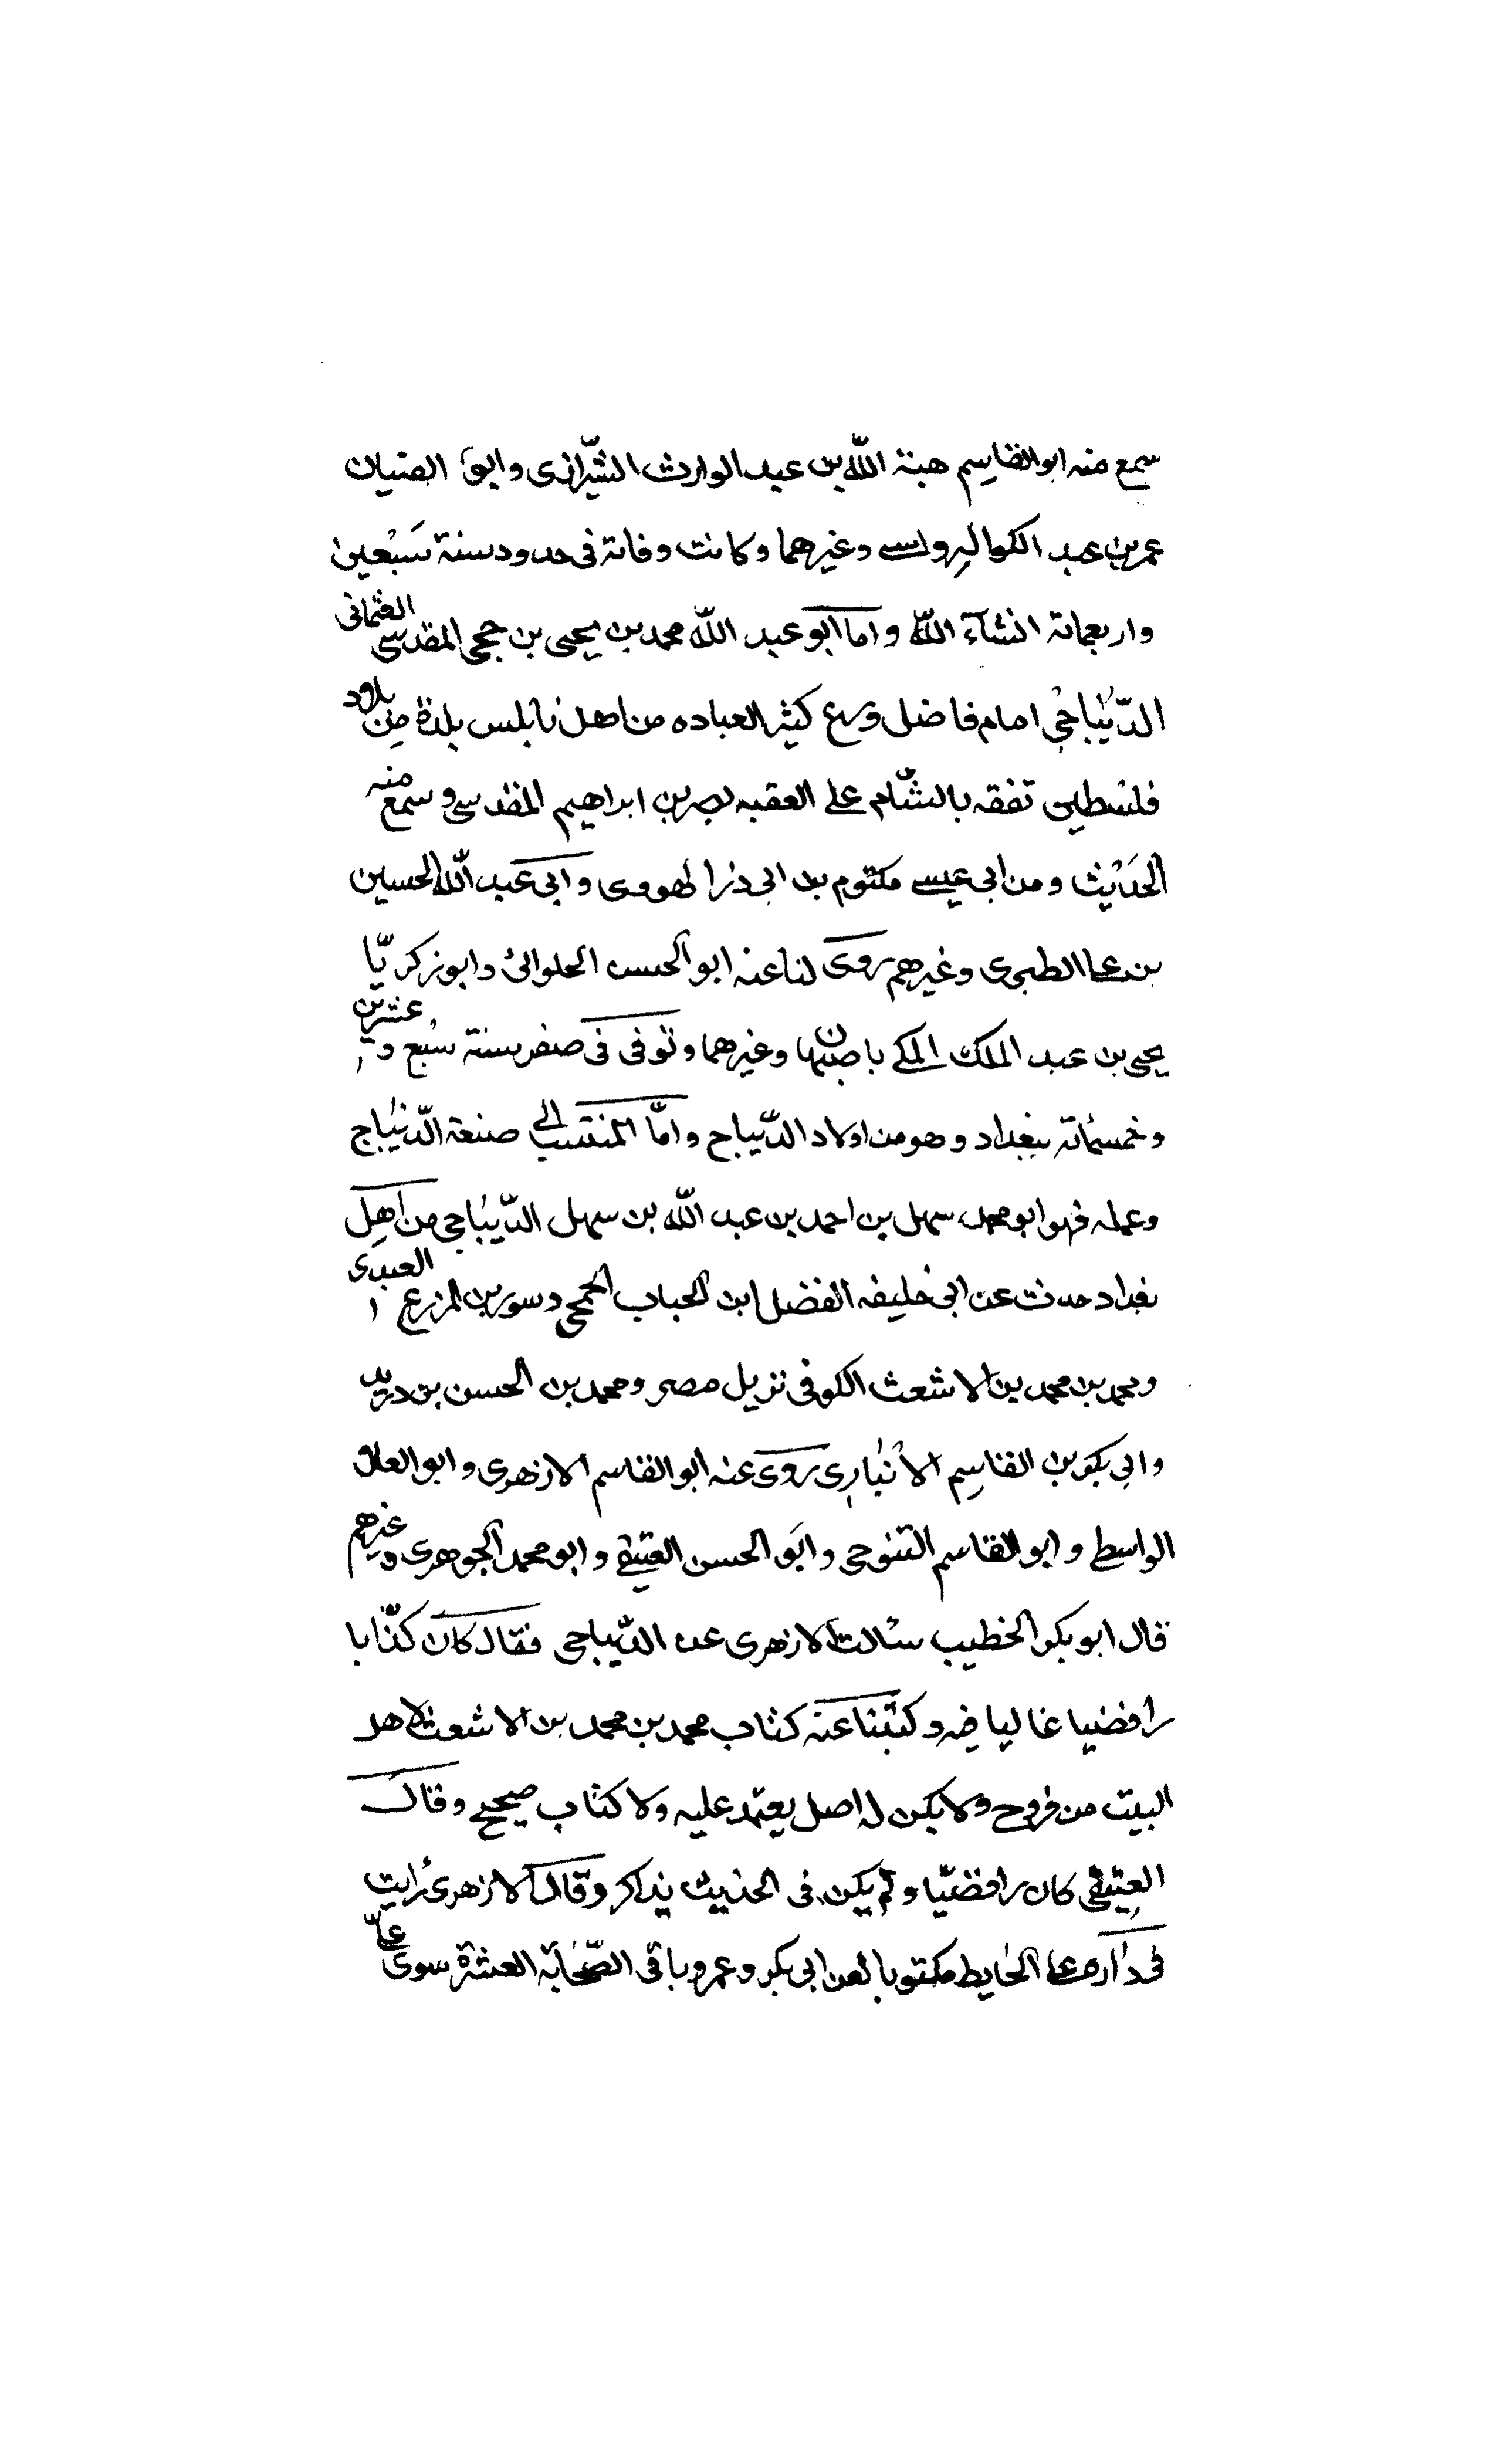 سمع منه ابو القاسم هبة الله بن عبد الوارث الشيرازى وابو الفتيان
عمر بن عبد الكريم الرواسى وغيرهما وكانت وفاته فى حدود سنة سبعين
واربعمائة انشآء الله واما ابو عبد الله محمد بن يحيى بن حجى المقدسى العثمانى
الدّيباجى امام فاضل ورع كثير العباده من اهل نابلس بلدة من بلاد
فلسطين تفقه بالشّام على الفقيه نصر بن ابراهيم المقدسى وسمع منه
الحَدِيث ومن ابى عيسى مكتوم بن ابى ذر الهروى وابى عبد الله الحسين
بن على الطبرى وغيرهم روى لنا عنه ابو الحسن الحلوانى وابو زكريّا
يحيى بن عبد الملك المكى باصبهان وغيرهما وتوفى فى صفر سنة سبع وعشرين
وخمسمائة ببغداد وهو من اولاد الدّيباج وامّا المنتسب الى صنعة الدّيباج
وعمله فهو ابو محمد سهل بن احمد بن عبد الله بن سهل الدّيباجى من اهل
بغداد حدث عن ابى خليفه الفضل ابن الحباب الجمحى و بن المزرع العبدى
ومحمد بن محمد بن الاشعث الكوفى نزيل مصر ومحمد بن الحسن بن دريد
وابى بكر بن القاسم الانبارى روى عنه ابو القاسم الازهرى وابو العلا
الواسطى وابو القاسم التنوخى وابو الحسن العتيقى وابو محمد الجوهرى وغيرهم
قال ابو بكر الخطيب سالت الازهرى عن الدّيباجى فقال كان كذّابا
رافضيا غاليا فيه وكتبنا عنه كتاب محمد بن محمد بن الاشعث لاهل
البيت من فروح ولا يكن له اصل يعتمد عليه ولا كتاب صحيح وقال
العتيقى كان رافضيّا ولم يكن فى الحديث بذاكر وقال الازهرى رايت
فى داره على الحايط مكتوبا لعن ابى بكر وعمر وباقى الصّحابة العشرة سوى علىّ